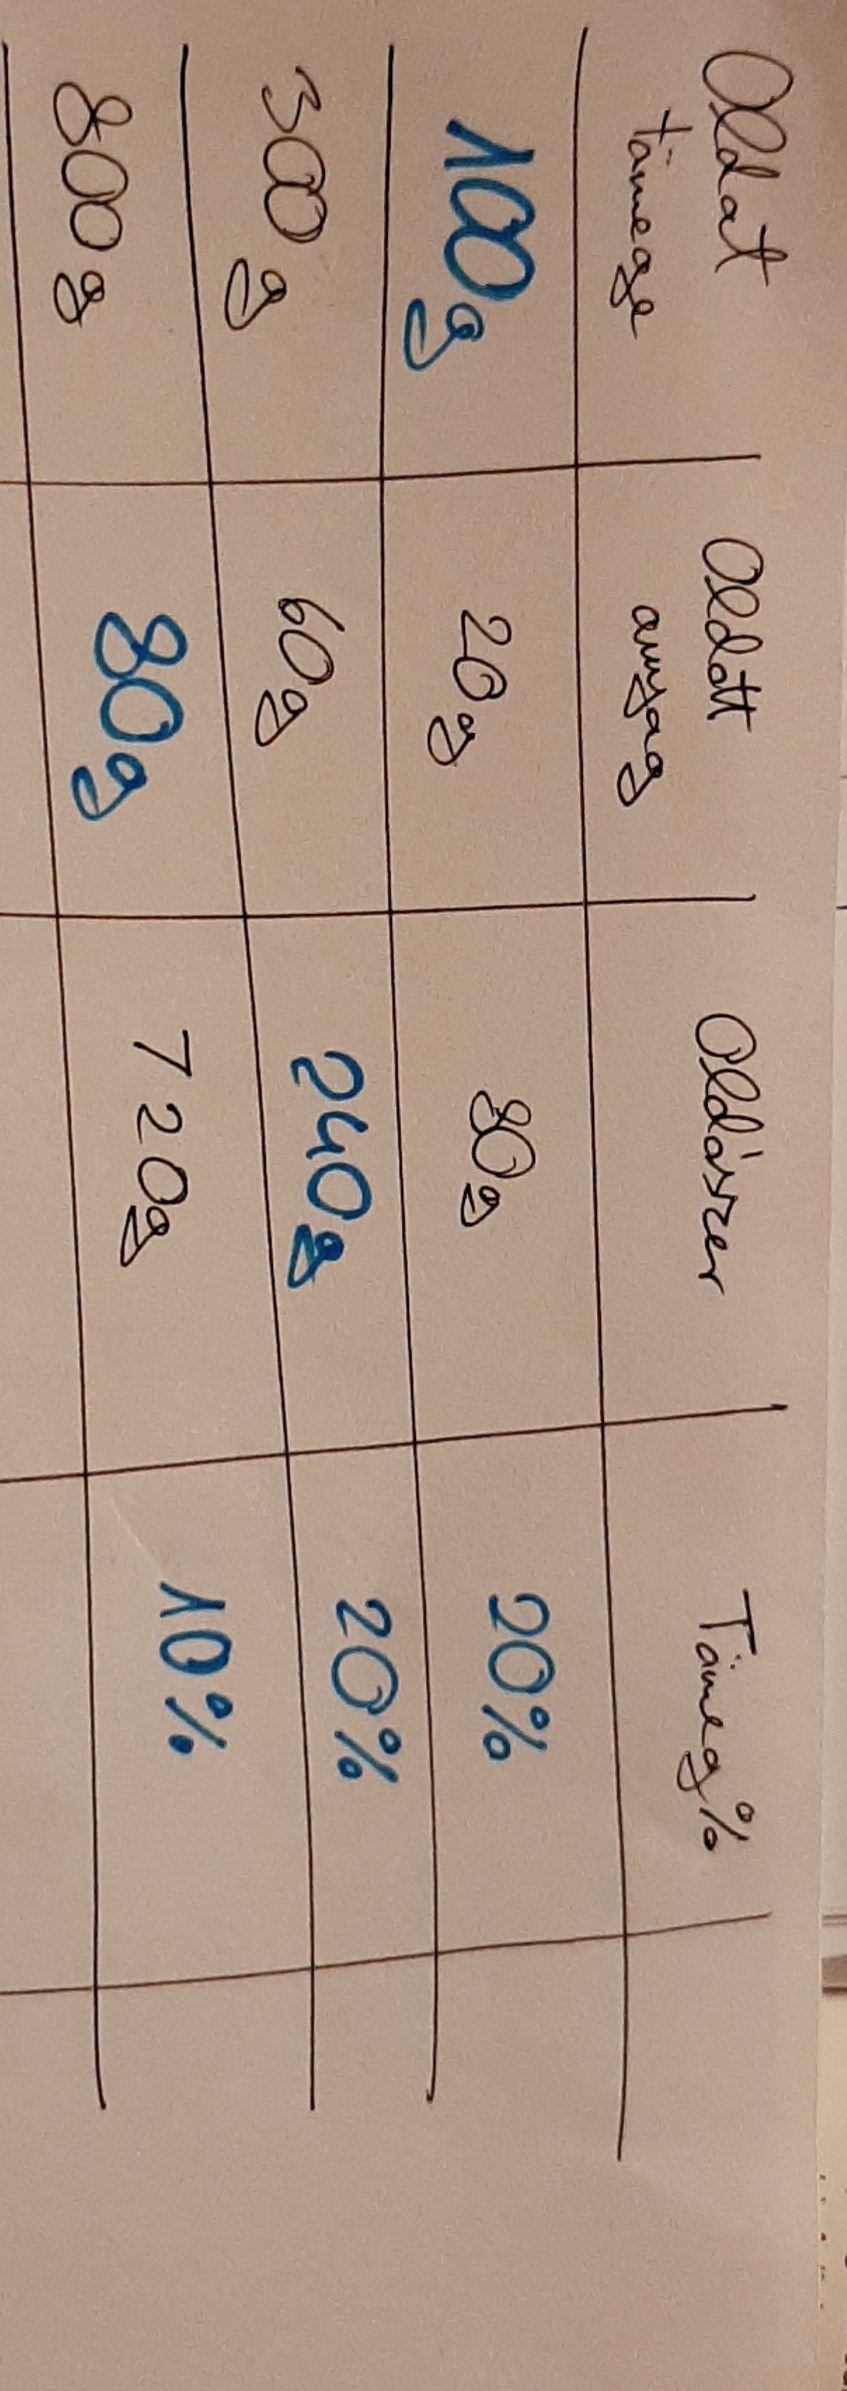 Oldat tömege Oldott anyag Oldószer Tömeg%
100g 20g 80g 20%
300g 60g 240g 20%
800g 80g 720g 10%